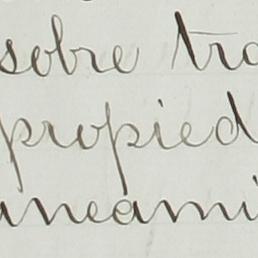 sobre tra
propied
aneami